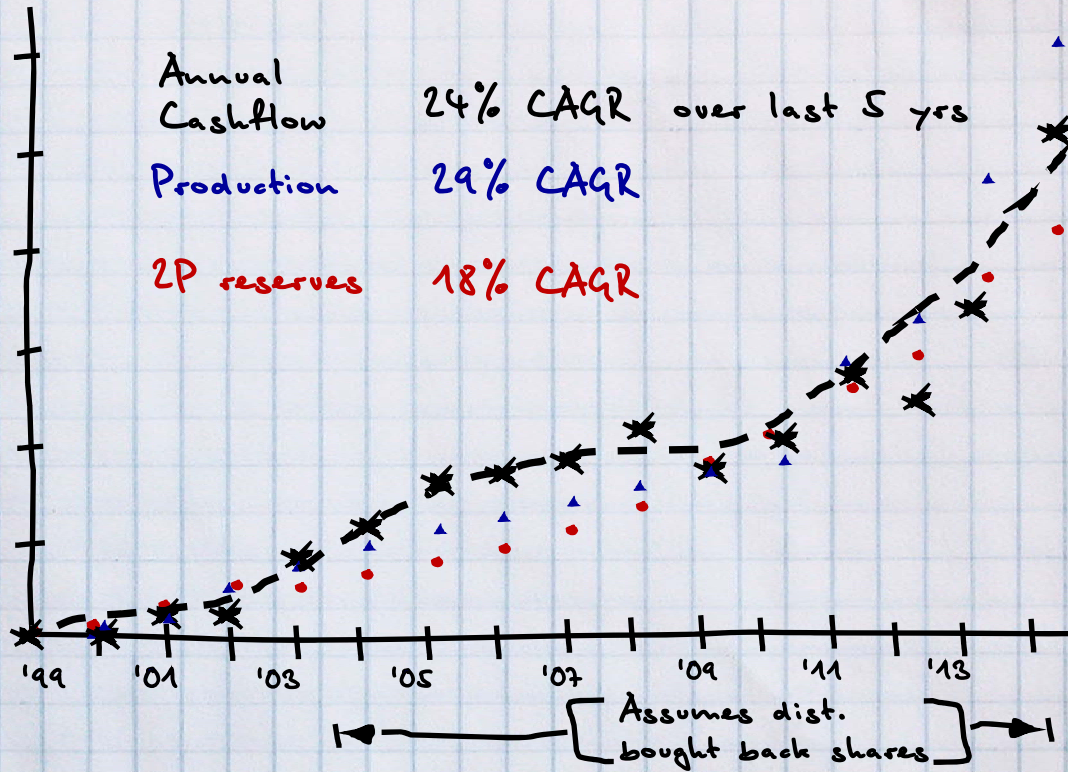 Annual
Cashflow 24% CAGR over last 5 yrs
Production 29% CAGR
2P reserves 18% CAGR
'99 '01 '03 '05 '07 '09 '11 '13
Assumes dist.
bought back shares